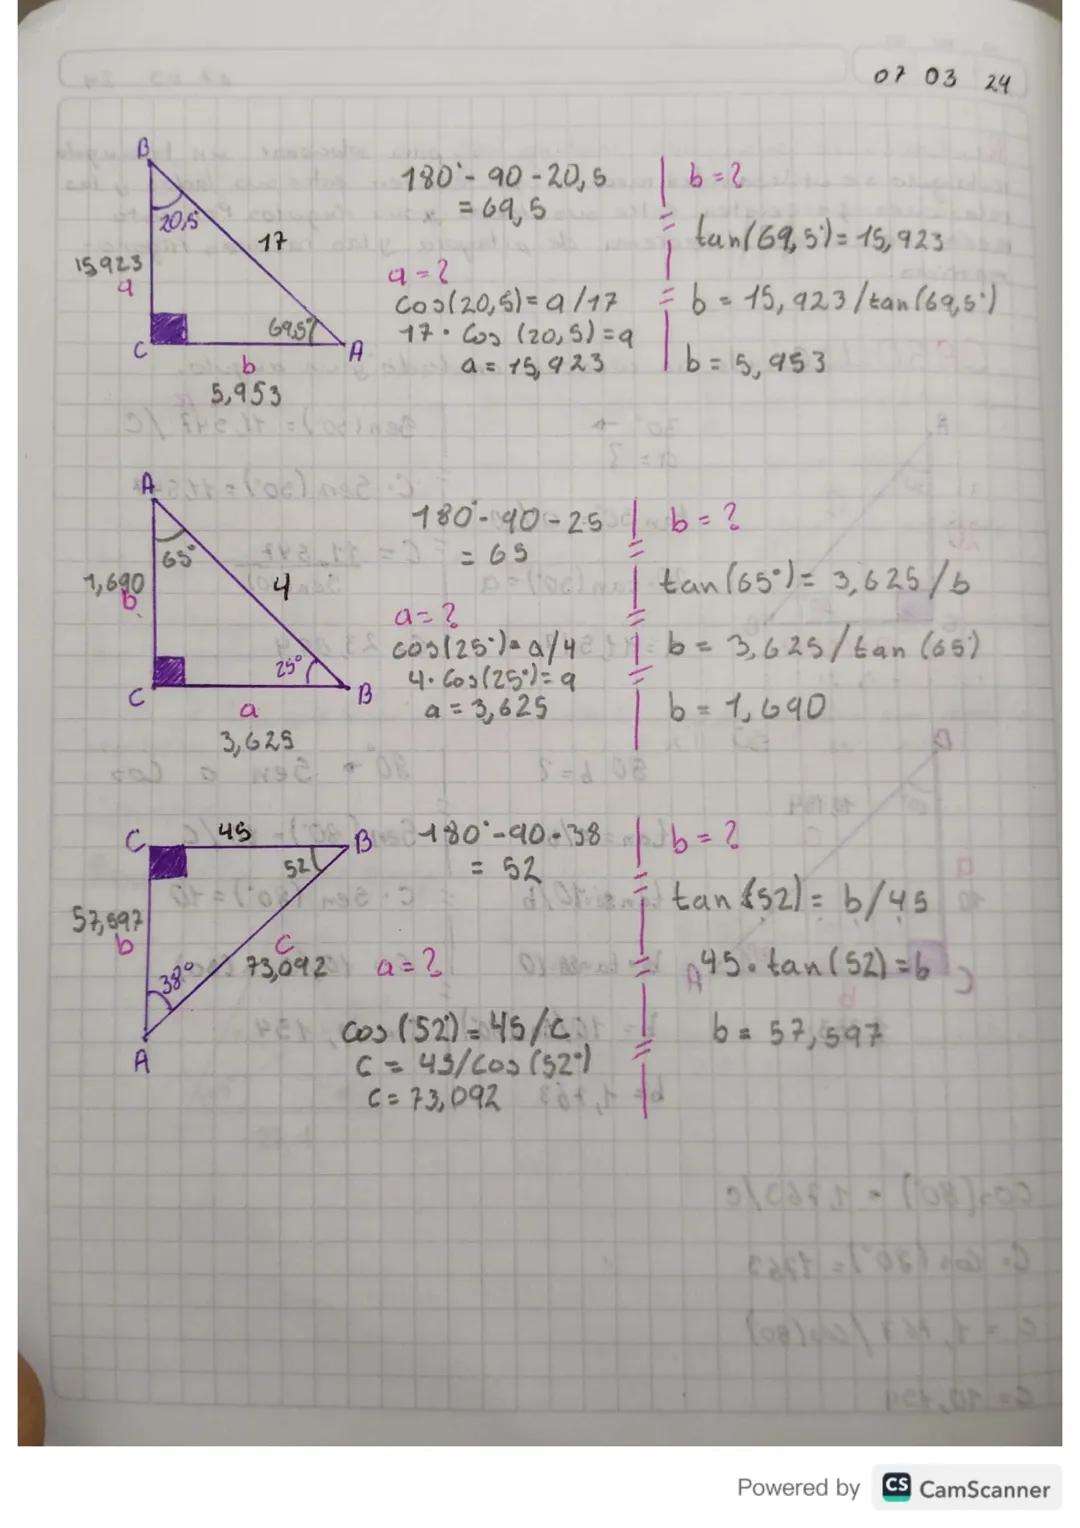 07 03 24
B
20,5
17
15,923
a
69,5°
C
A
b
5,953
180° - 90 - 20,5
= 69,5
a = ?
cos(20,5) = a/17
17 · Cos (20,5) = a
a = 15,923
b = ?
tan(69,5°) = 15,923
b = 15,923/tan(69,5°)
b = 5,953
A
65°
1,690
b
4
25°
C
B
a
3,625
180° - 90 - 25
= 65
a = ?
cos(25°) = a/4
4 · Cos(25°) = a
a = 3,625
b = ?
tan(65°) = 3,625/b
b = 3,625/tan (65)
b = 1,690
C
45
B
52
57,597
b
C
73,092
38°
A
180° - 90 - 38
= 52
a = ?
cos (52°) = 45/C
C = 45/Cos (52°)
C = 73,092
b = ?
tan (52) = b/45
45 · tan (52) = b
b = 57,597
Powered by CS CamScanner